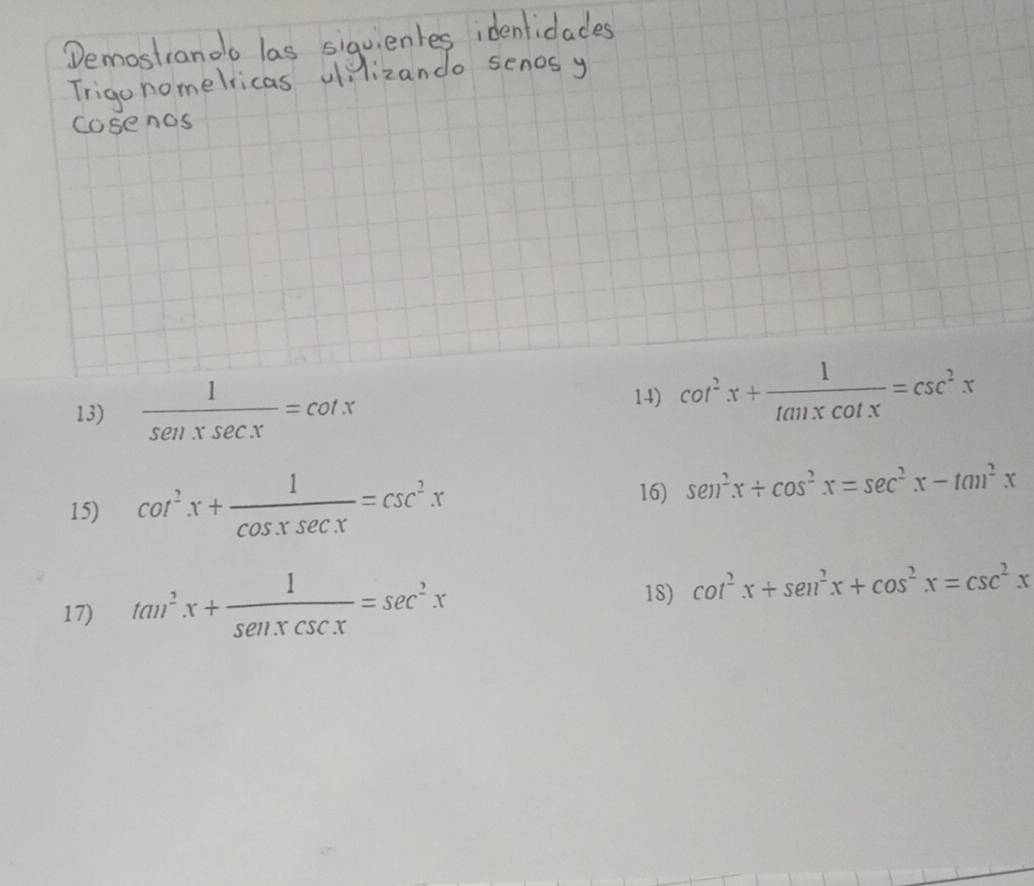 Demostrando las siguientes identidades
Trigonometricas utilizando senos y
cosenos
13) 1/(sen x sec x) = cot x
14) cot² x + 1/(tan x cot x) = csc² x
15) cot² x + 1/(cos x sec x) = csc² x
16) sen² x + cos² x = sec² x − tan² x
17) tan² x + 1/(sen x csc x) = sec² x
18) cot² x + sen² x + cos² x = csc² x